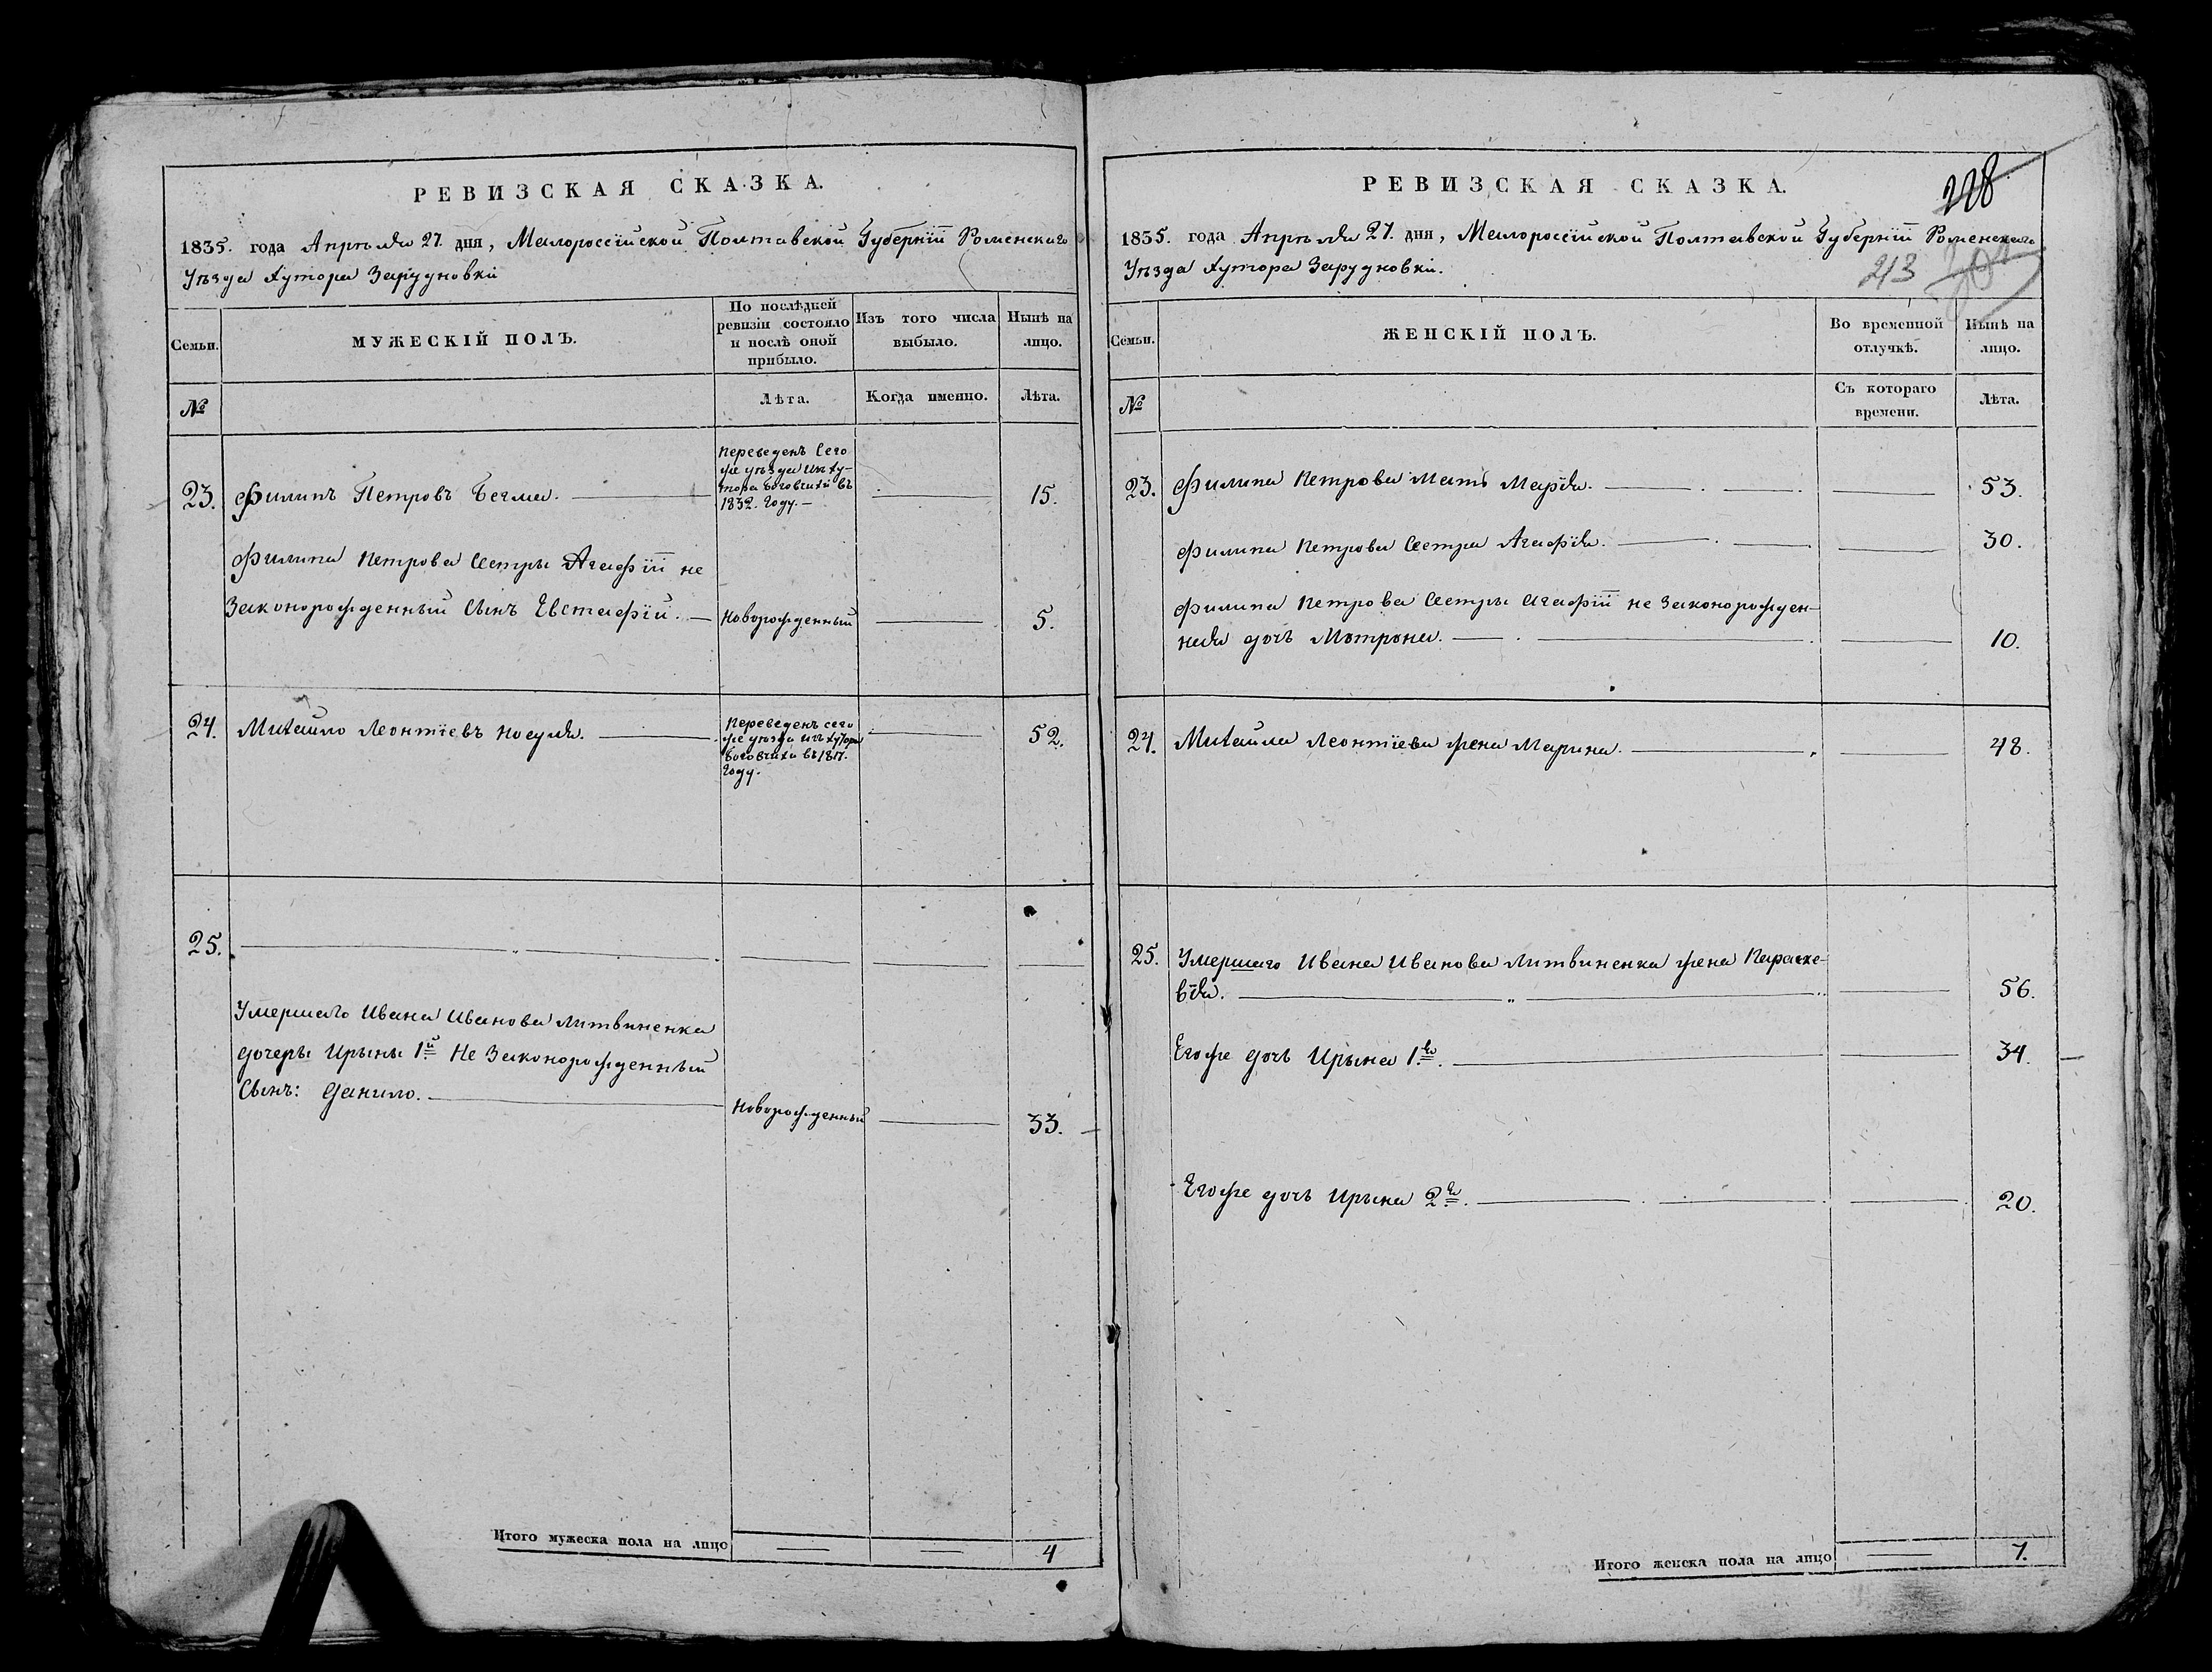 РЕВИЗСКАЯ СКАЗКА.
1835. года Апрѣля 27. дня, Малороссійской Полтавской Губерніи Роменскаго
Уѣзда Хутора Зарудновки
Семьи.
МУЖЕСКІЙ ПОЛЪ.
По послѣдней
ревизіи состояло
и послѣ оной
прибыло.
Изъ того числа
выбыло.
Нынѣ на
лицо.
№
Лѣта.
Когда именно.
Лѣта.
23. Филипъ Петровъ Бегма.
переведенъ Сего
же уѣзда изъ ху-
тора въ
1832. Году.
15.
Филипа Петрова Сестры Агафіи не
Законорожденный Сынъ Евстафій. Новорожденный 5.
24. Михайло Леонтіевъ Носуля.
Переведенъ сего
же уѣзда изъ хутора
въ 1817.
Году.
52.
25.
Умершаго Ивана Иванова Литвиненка
дочеры Ирыны 1й Не Законорожденный
Сынъ: Данило. Новорожденный 33.
Итого мужеска пола на лицо 4
РЕВИЗСКАЯ СКАЗКА.
228
1835. года Апрѣля 27. дня, Малороссійской Полтавской Губерніи Роменскаго
Уѣзда Хутора Зарудновки.
213
Семьи.
ЖЕНСКІЙ ПОЛЪ.
Во временной
отлучкѣ.
Нынѣ на
лицо.
№
Съ котораго
времени.
Лѣта.
23. Филипа Петрова Мать Марія. 53.
Филипа Петрова Сестра Агафія. 30.
Филипа Петрова Сестры Агафіи не Законорожден-
ная дочь Мотрона. 10.
24. Михайла Леонтіева жена Марина. 48.
25. Умершаго Ивана Иванова Литвиненка жена Параске-
вія. 56.
Егоже дочь Ирына 1я. 34.
Егоже дочь Ирына 2я. 20.
Итого женска пола на лицо 7.